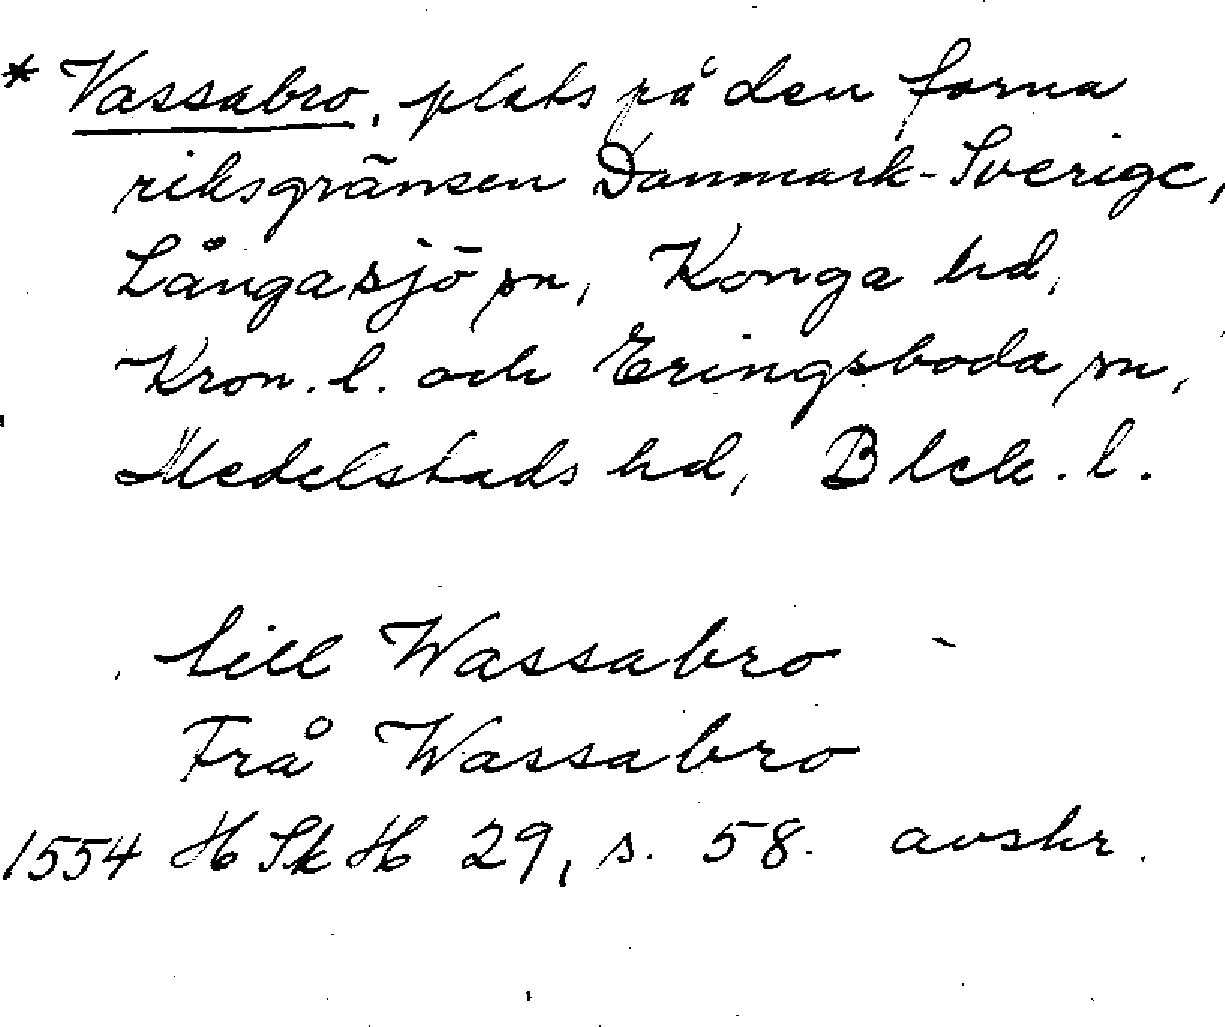 * Vassabro, plats på den forna
riksgränsen Danmark-Sverige,
Långasjö sn, Konga hd,
Kron. l. och Eringsboda sn,
Medelstads hd, Blek. l.
till Wassabro
Frå Wassabro
1554 HSkH 29, s. 58. avskr.